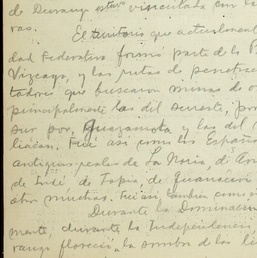 de Durango estar vinculada con la
ras.
El territorio que actualment
dad Federativa formó parte de la P
Vizcaya, y las rutas de penetra
tadores que buscaron minas de o
principalmente las del sureste, pro
sur por Guazamota y las del
liacán. Fue así como los Españo
antiguos reales de La Noria, de
de Indé, de Topia, de Guanaceví
otro muchas. Fue así también como
Durante la Dominación
mente, durante la Independenci
rango floreció, la sombra de las